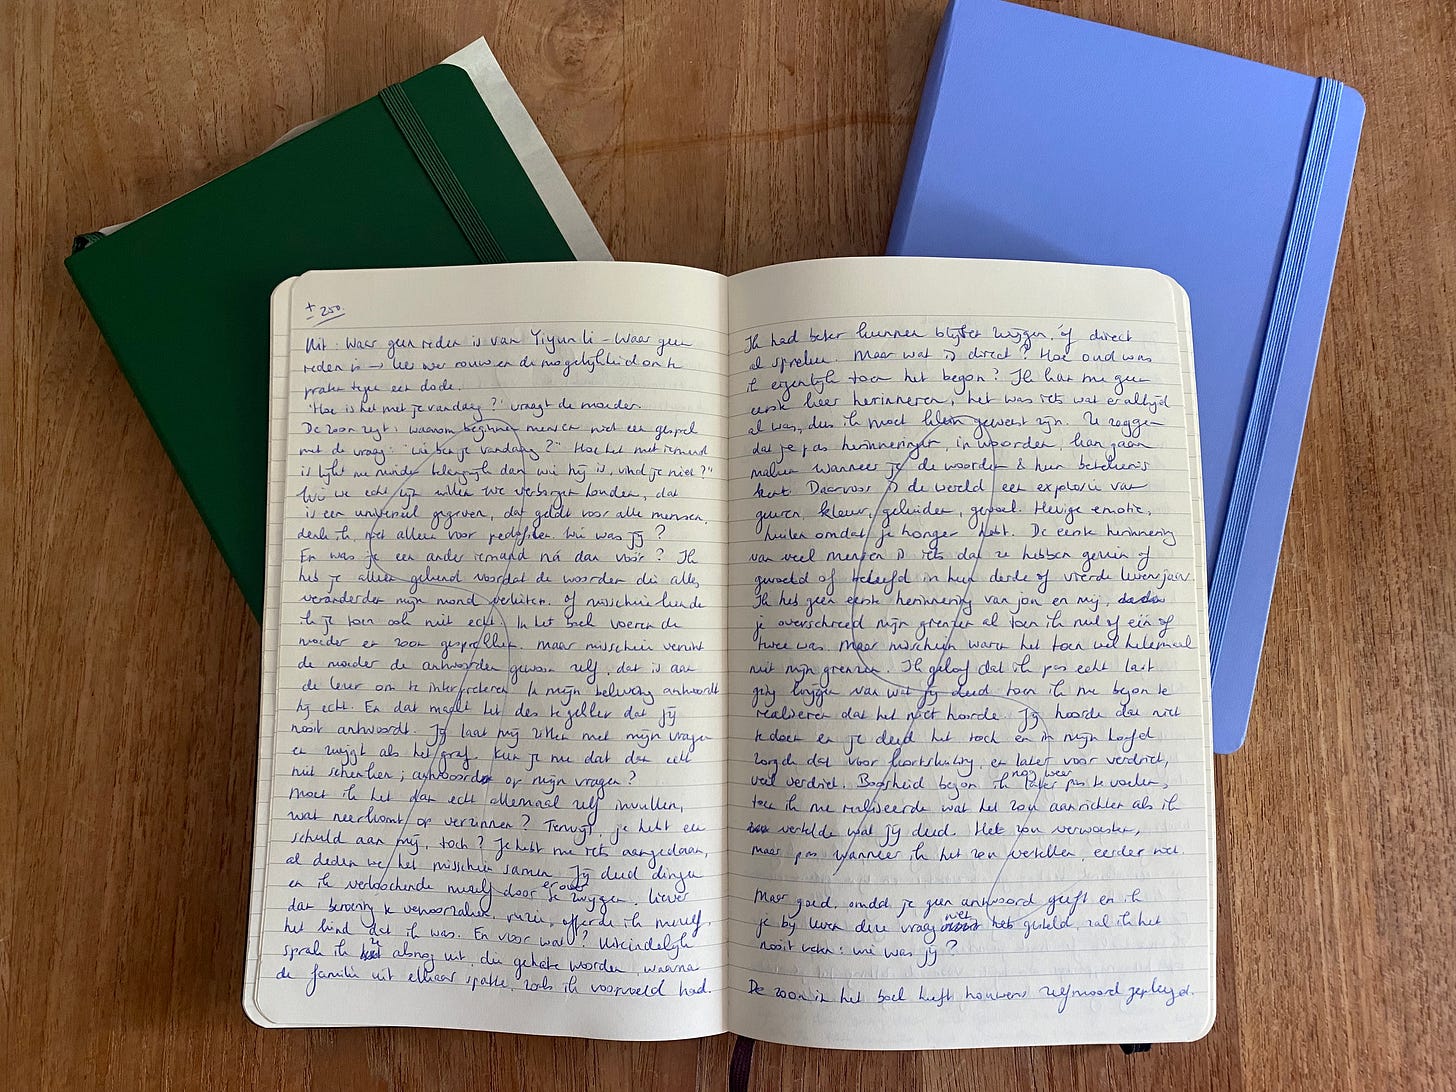 ± 250.
Uit: Waar geen reden is van Yiyun Li – Waar geen
reden is → over rouw en de mogelijkheid om te
praten tegen een dode.
'Hoe is het met je vandaag?' vraagt de moeder.
De zoon zegt: waarom beginnen mensen nooit een gesprek
met de vraag: "wie ben je vandaag?" Hoe het met iemand
is lijkt me minder belangrijk dan wie hij is, vind je niet?"
Wie we echt zijn willen we verborgen houden, dat
is een universeel gegeven, dat geldt voor alle mensen,
denk ik, niet alleen voor pedofielen. Wie was jij?
En was je een ander iemand ná dan vóór? Ik
heb je alleen gekend voordat de woorden die alles
veranderden mijn mond verlieten. Of misschien kende
ik je toen ook niet echt. In het boek voeren de
moeder en zoon gesprekken, maar misschien verzint
de moeder de antwoorden gewoon zelf, dat is aan
de lezer om te interpreteren. In mijn beleving antwoordt
hij echt. En dat maakt het des te geller dat jij
nooit antwoordt. Jij laat mij zitten met mijn vragen
en zwijgt als het graf. Kun je me dat dan echt
niet schenken; antwoorden op mijn vragen?
Moet ik het dan echt allemaal zelf invullen,
wat neerkomt op verzinnen? Terwijl, je hebt een
schuld aan mij, toch? Je hebt me iets aangedaan,
al deden we het misschien samen. Jij deed dingen
en ik verloochende mezelf door erover te zwijgen. Liever
dan beroering te veroorzaken, ruzie, offerde ik mezelf,
het kind dat ik was. En voor wat? Uiteindelijk
sprak ik ze alsnog uit, die gehate woorden, waarna
de familie uit elkaar spatte, zoals ik voorspeld had.
Ik had beter kunnen blijven zwijgen, óf direct
al spreken. Maar wat is direct? Hoe oud was
ik eigenlijk toen het begon? Ik kan me geen
eerste keer herinneren, het was iets wat er altijd
al was, dus ik moet klein geweest zijn. Ze zeggen
dat je pas herinneringen, in woorden, kan gaan
maken wanneer je de woorden & hun betekenis
kent. Daarvoor is de wereld een explosie van
geuren, kleur, geluiden, gevoel. Hevige emotie,
huilen omdat je honger hebt. De eerste herinnering
van veel mensen is iets dat ze hebben gezien of
gevoeld of beleefd in hun derde of vierde levensjaar.
Ik heb geen eerste herinnering van jou en mij,
je overschreed mijn grenzen al toen ik nul of één of
twee was. Maar misschien waren het toen wel helemaal
niet mijn grenzen. Ik geloof dat ik pas echt last
ging krijgen van wat jij deed toen ik me begon te
realiseren dat het niet hoorde. Jij hoorde dat niet
te doen en je deed het toch en in mijn hoofd
zorgde dat voor kortsluiting, en later voor verdriet,
veel verdriet. Boosheid begon ik nog weer later pas te voelen,
toen ik me realiseerde wat het zou aanrichten als ik
vertelde wat jij deed. Het zou verwoesten,
maar pas wanneer ik het zou vertellen, eerder niet.
Maar goed, omdat je geen antwoord geeft en ik
je bij leven deze vraag niet heb gesteld, zal ik het
nooit weten: wie was jij?
De zoon in het boek heeft trouwens zelfmoord gepleegd.